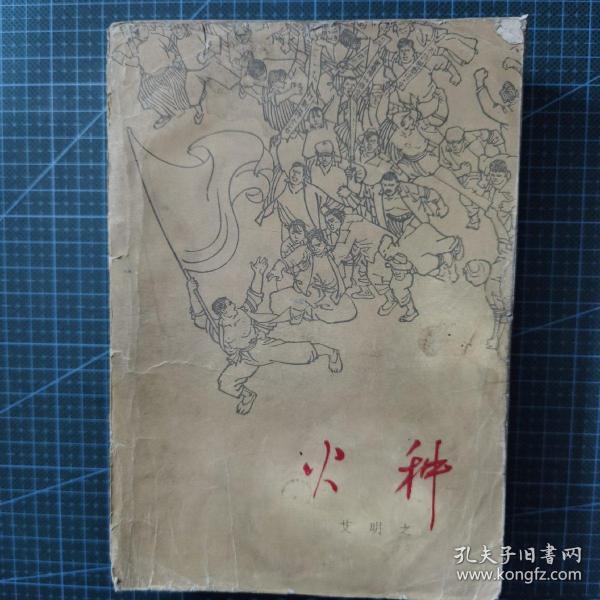 火种
艾明之
孔夫子旧书网
www.kongfz.com